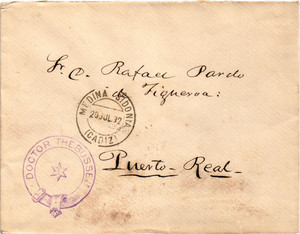 Sr. D. Rafael Pardo
de Figueroa:
MEDINA SIDONIA
29 JUL 92
(CADIZ)
DOCTOR THEBUSSEM
Puerto-Real-